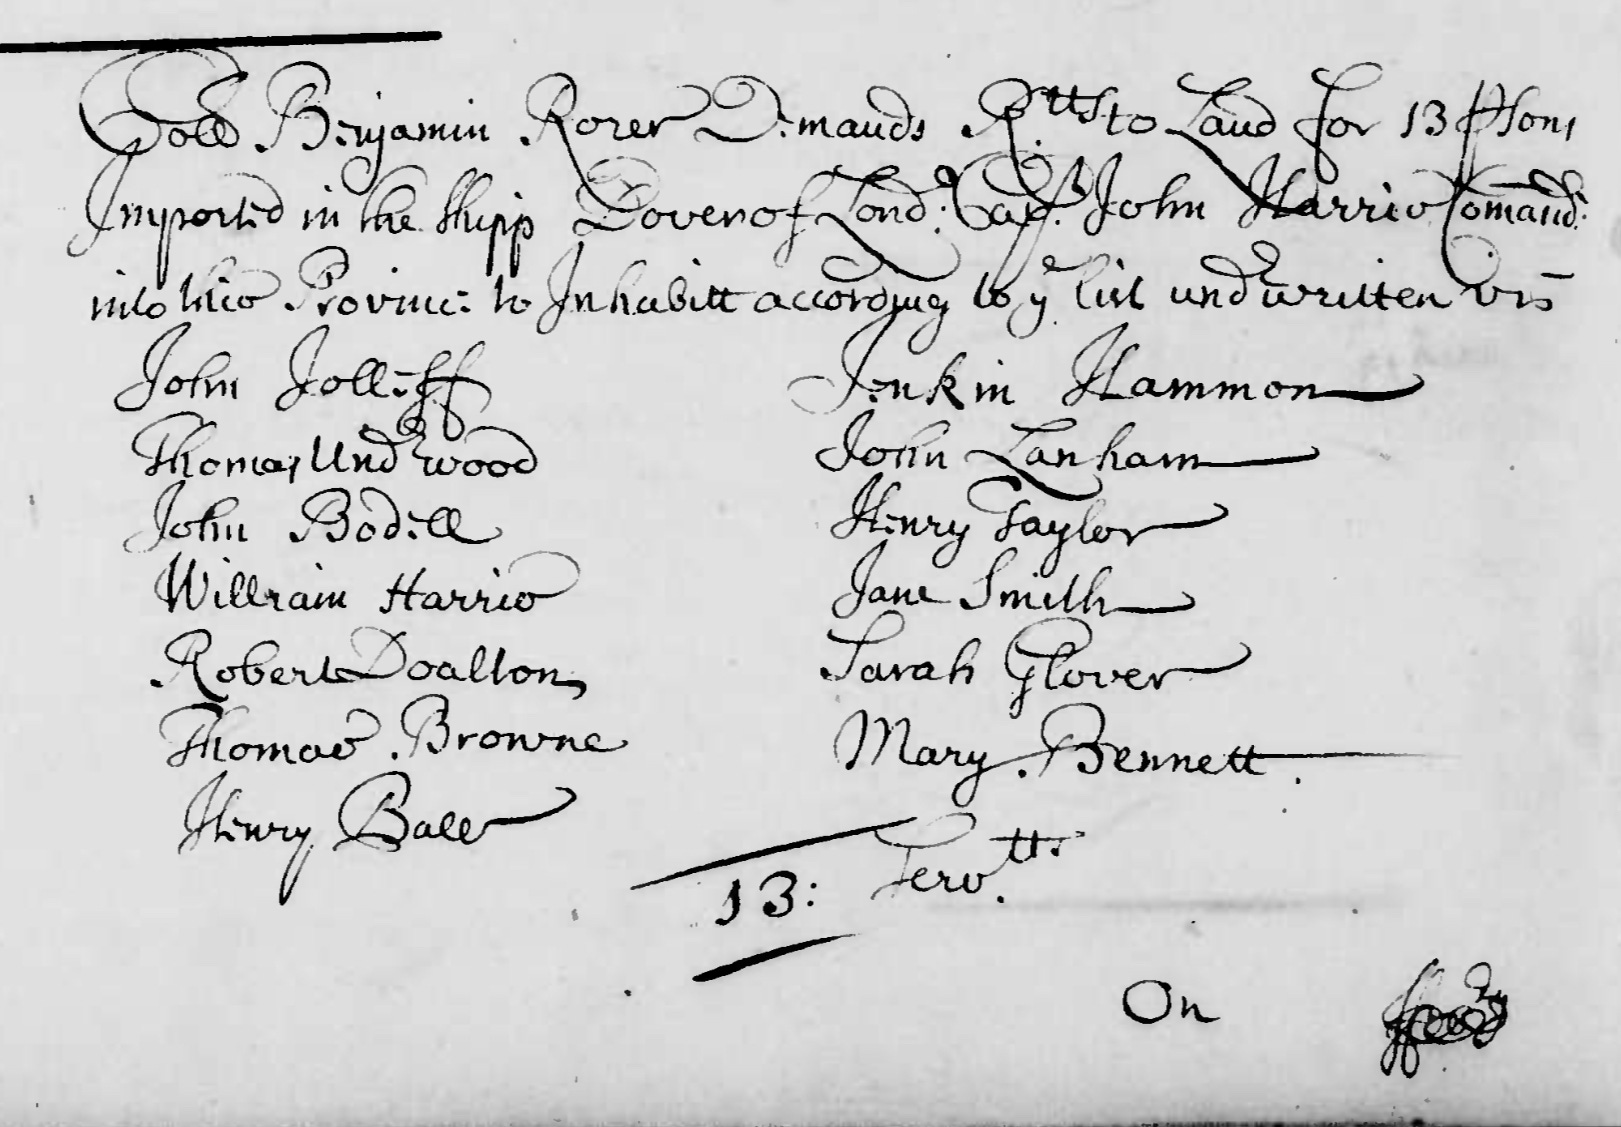 Coll Benjamin Rozer Demands R.tts to Land for 13 Psons
Imported in the Shipp Dover of Lond: Cap.t John Harris Comand.r
into this Province to Inhabitt according to ye list underwritten viz
John Jolleff Jenkin Hammon
Thomas Underwood John Lanham
John Bodell Henry Taylor
William Harris Jane Smith
Robert Doalton Sarah Glover
Thomas Browne Mary Bennett
Henry Ball
13: Serv.tts
On